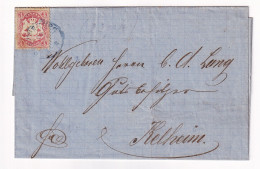 Wohlgeboren Herrn C. A. Lang
Gutsbesitzer
fr.
Kelheim.